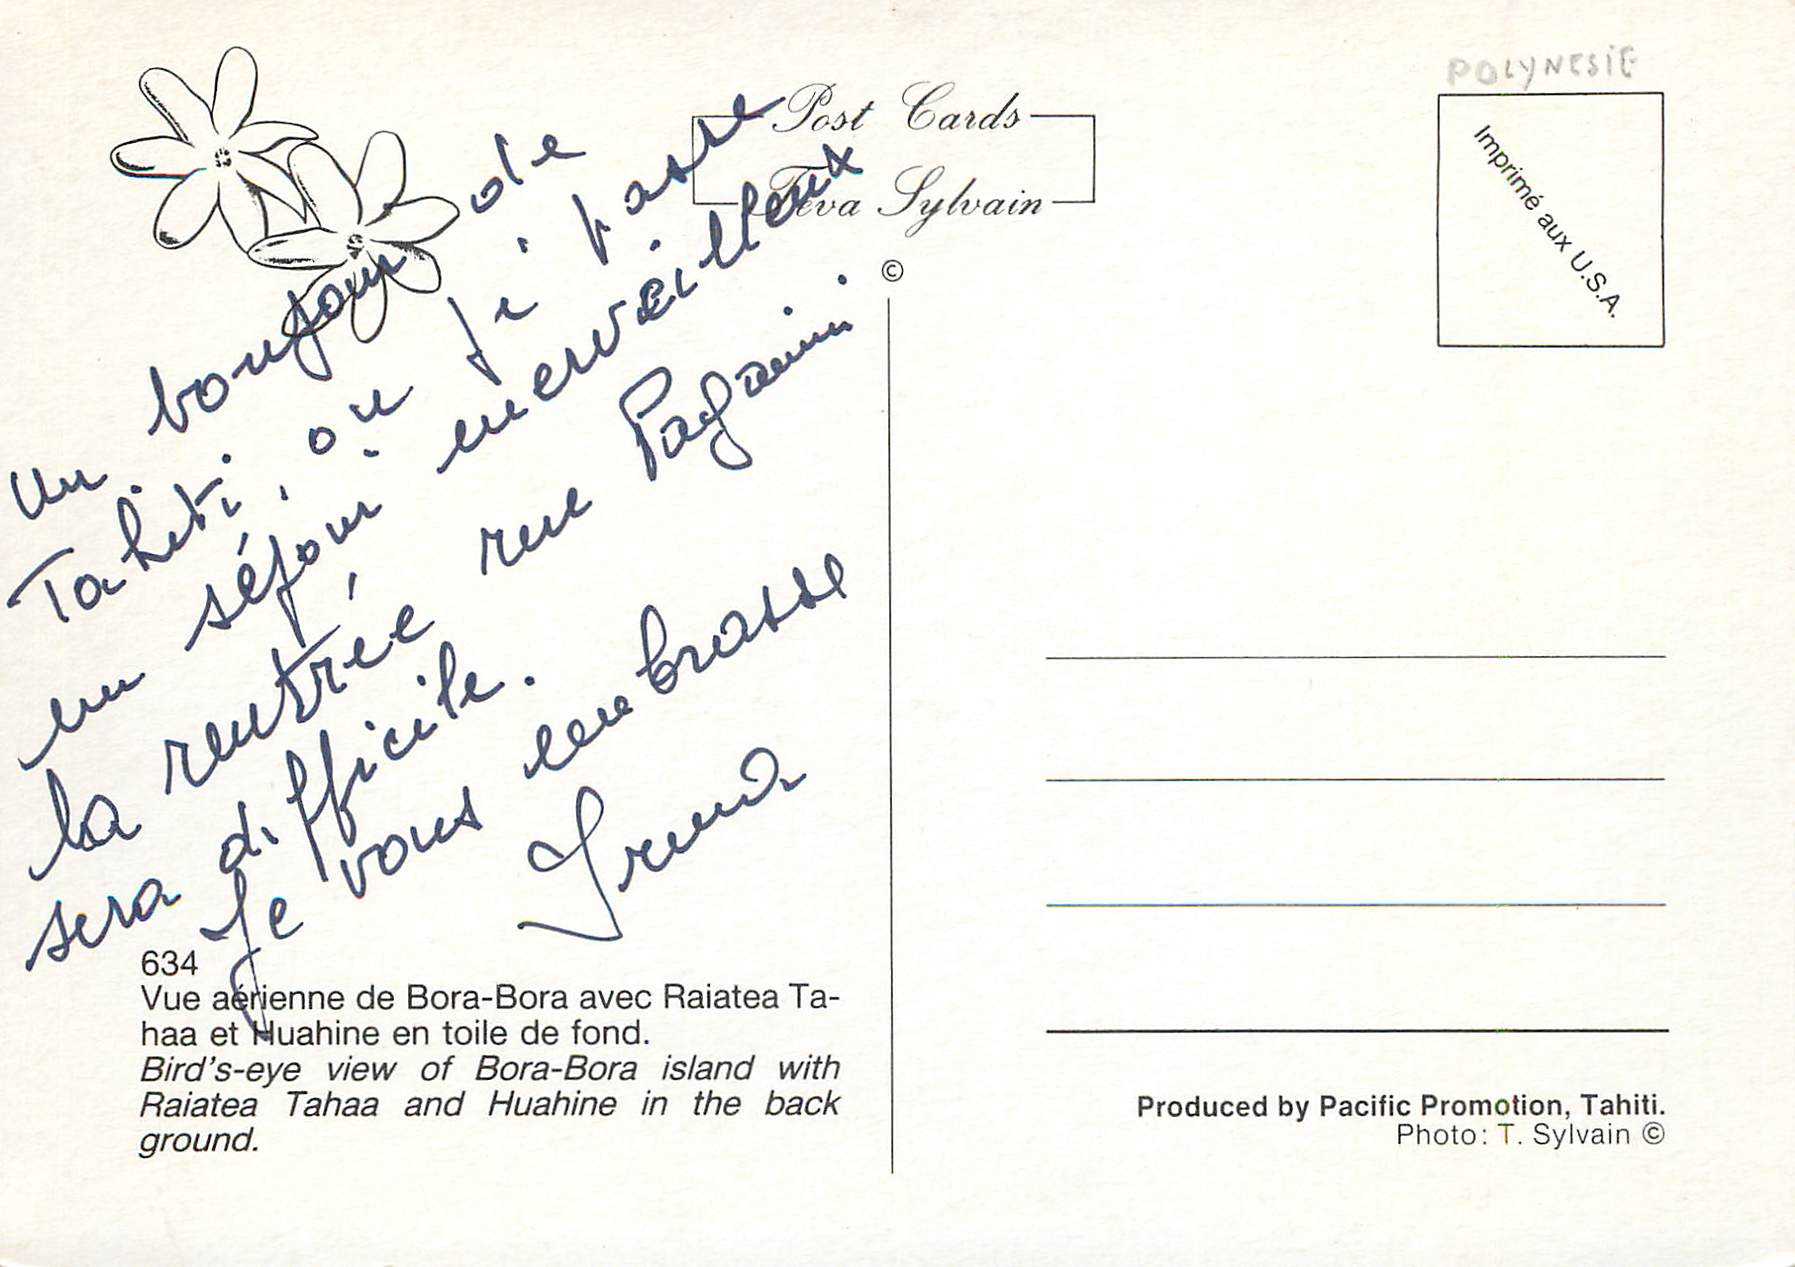 POLYNESIE
Post Cards
Teva Sylvain
©
Imprimé aux U.S.A.
Un bonjour de
Tahiti, où je passe
un séjour merveilleux
la rentrée rue Paganini
sera difficile.
Je vous embrasse
634
Vue aérienne de Bora-Bora avec Raiatea Ta-
haa et Huahine en toile de fond.
Bird's-eye view of Bora-Bora island with
Raiatea Tahaa and Huahine in the back
ground.
Produced by Pacific Promotion, Tahiti.
Photo: T. Sylvain ©